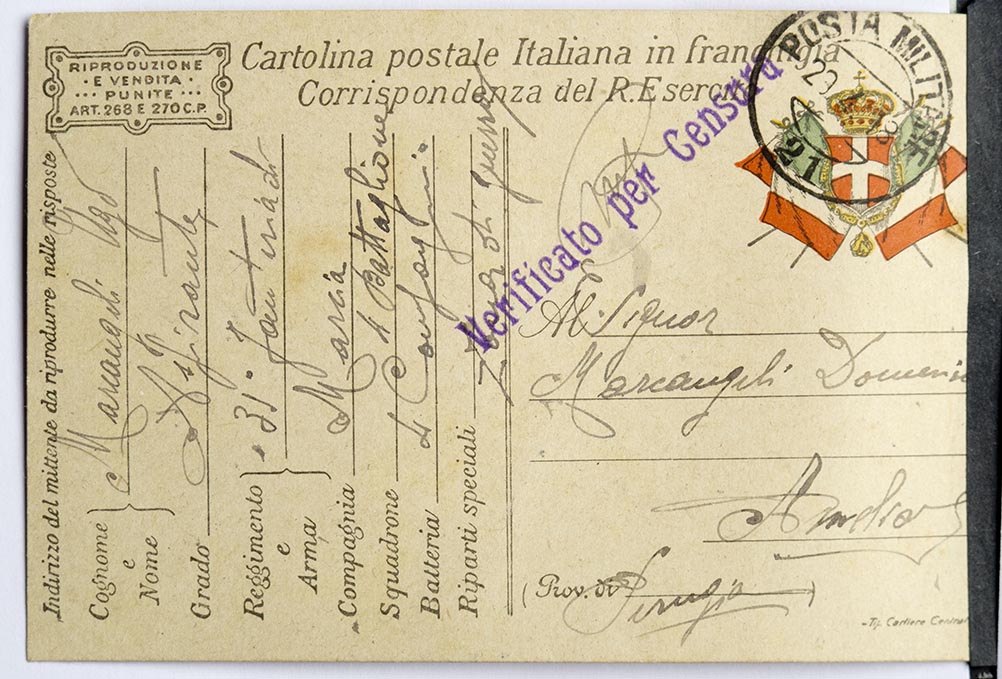 RIPRODUZIONE
E VENDITA
PUNITE
ART. 268 E 270 C.P.
Cartolina postale Italiana in franchigia
Corrispondenza del R. Esercito
POSTA MILITARE
Verificato per Censura
Indirizzo del mittente da riprodurre nelle risposte
Cognome e Nome Ugo
Grado Aspirante
Reggimento e Arma 31° Fanteria
Compagnia Marcia
Squadrone Battaglione
Batteria
Riparti speciali Zona di guerra
Al Signor
Marcangeli
Amelia
(Prov. di Perugia)
Tip. Cartiere Central